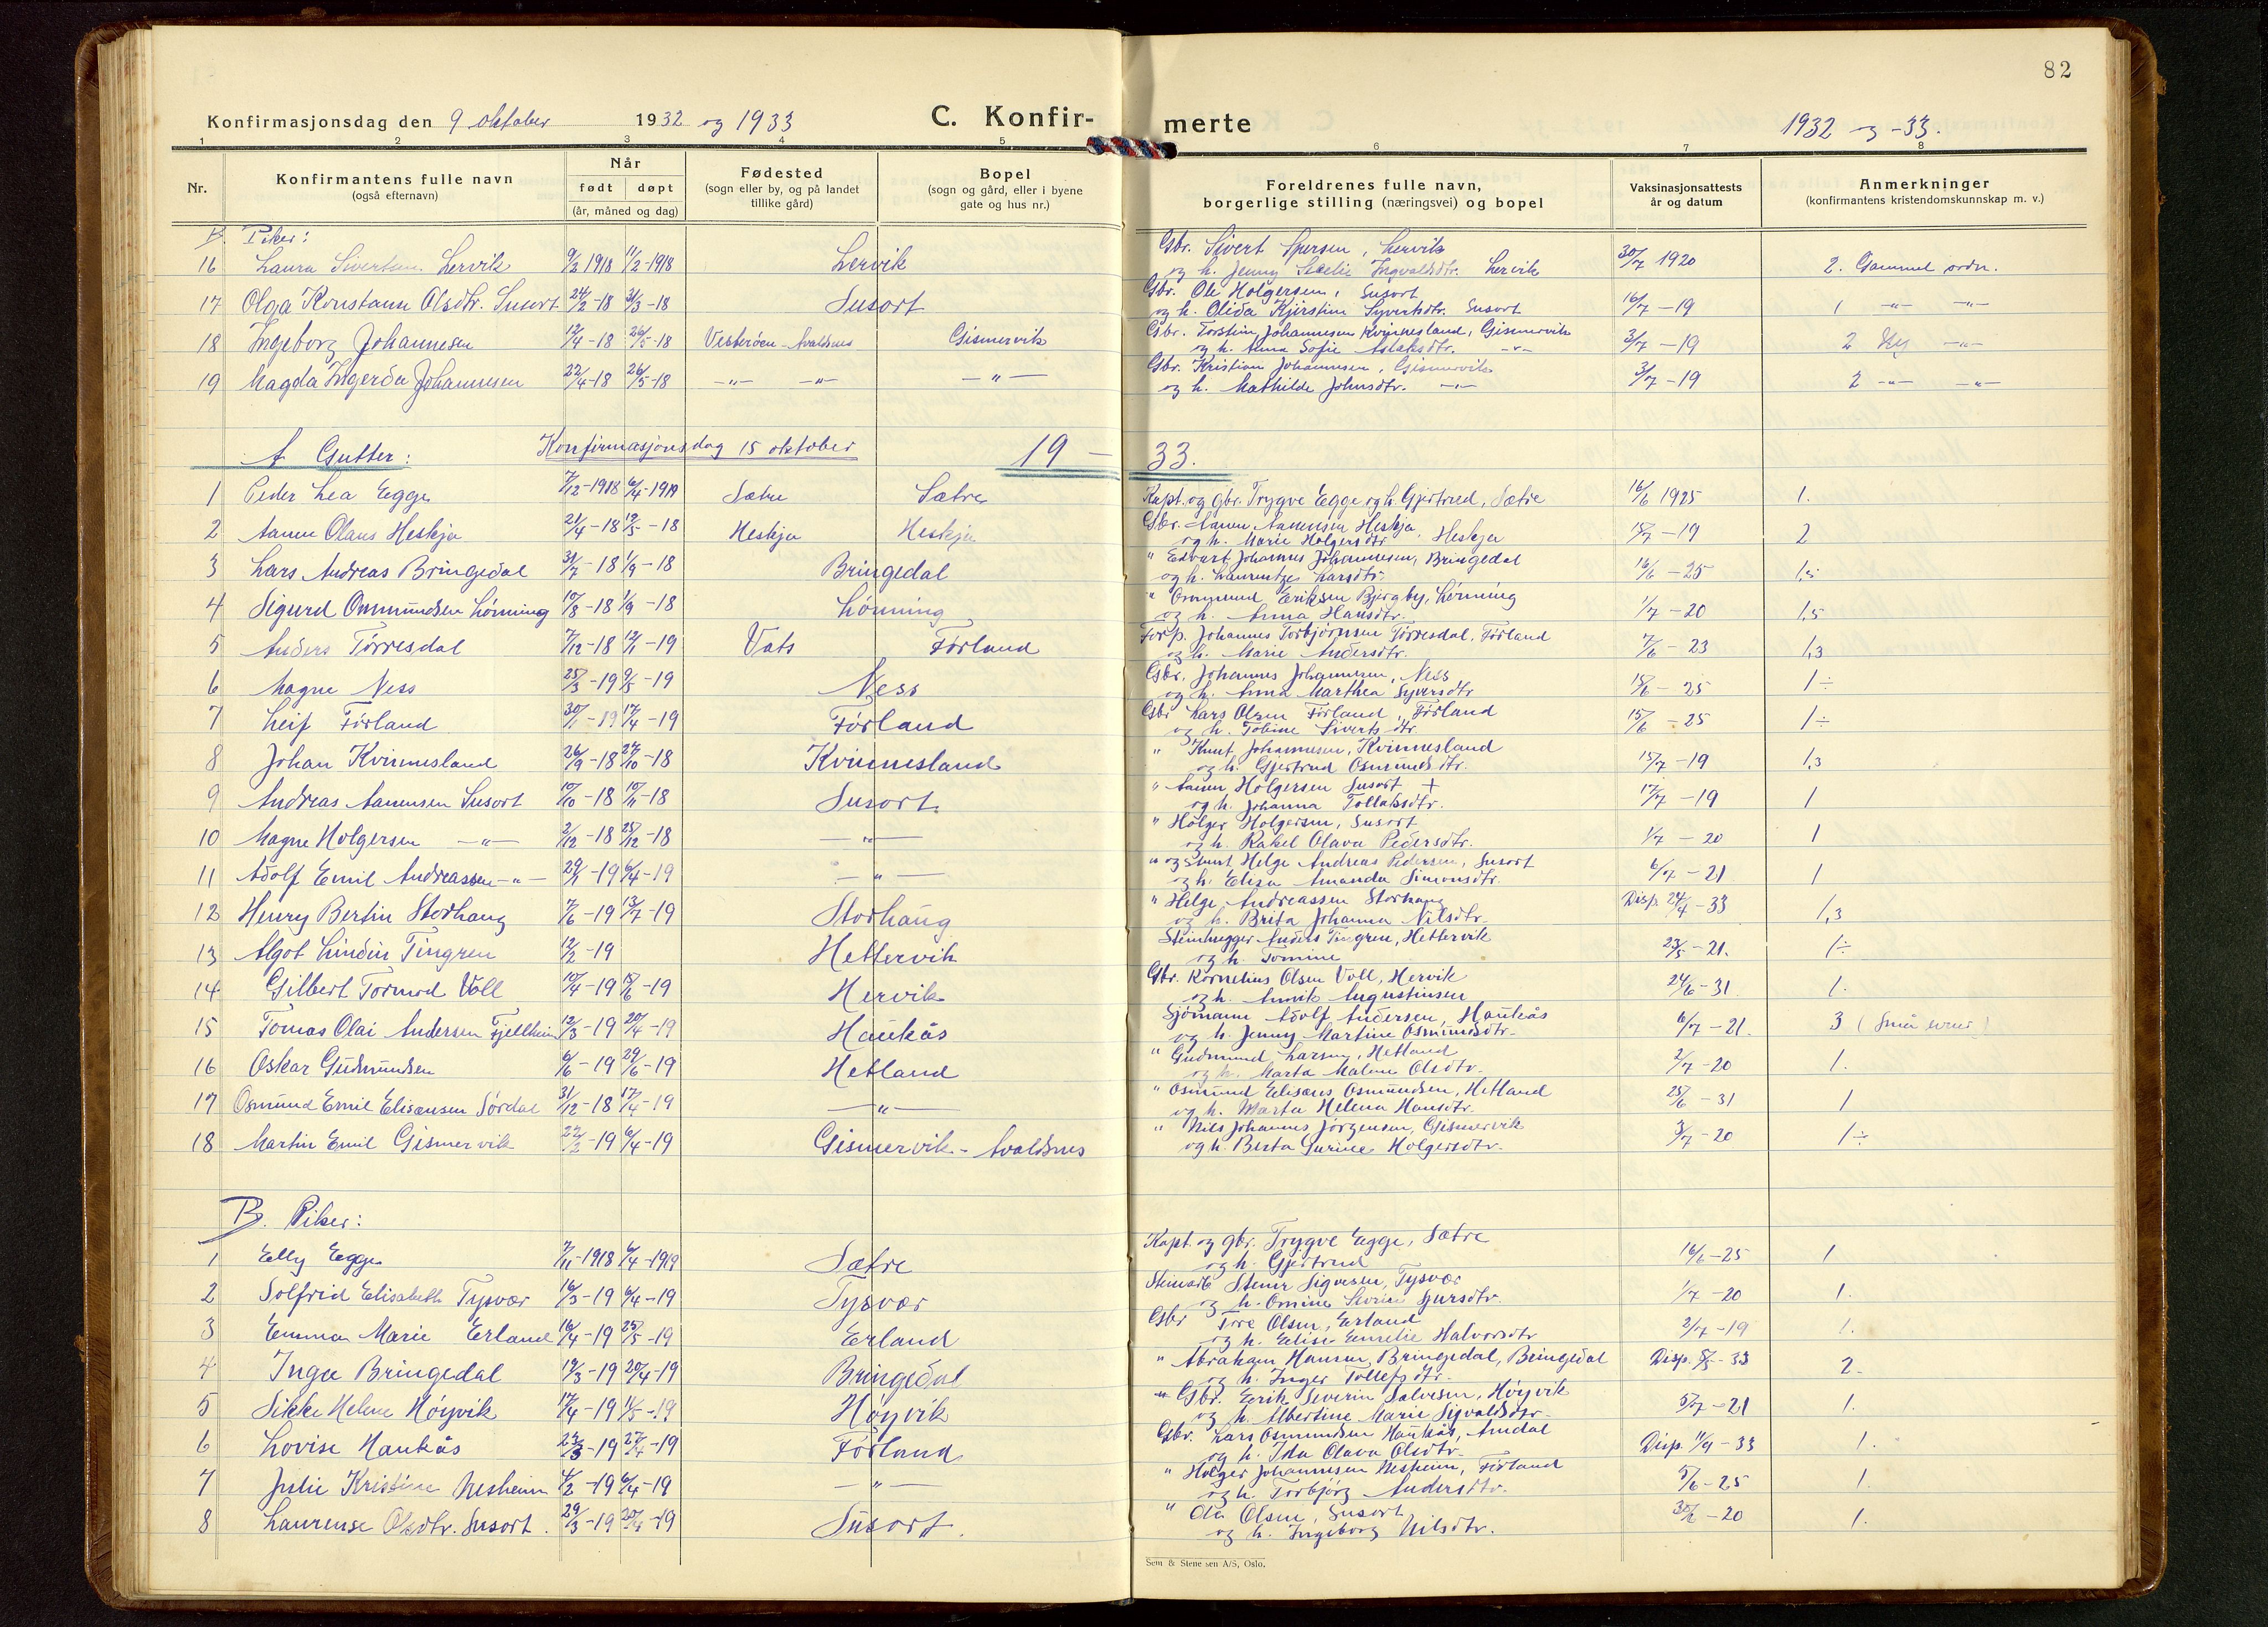 82
Konfirmasjonsdag den 9 oktober 1932 og 1933 C. Konfirmerte 1932 og -33.
1 2 3 4 5 6 7 8
Nr. Konfirmantens fulle navn (også efternavn) Når født døpt (år, måned og dag) Fødested (sogn eller by, og på landet tillike gård) Bopel (sogn og gård, eller i byene gate og hus nr.) Foreldrenes fulle navn, borgerlige stilling (næringsvei) og bopel Vaksinasjonsattests år og datum Anmerkninger (konfirmantens kristendomskunnskap m. v.)
B. Piker:
16 Laura Sivertsen Lervik 9/2 1918 11/2-1918 Lervik Gbr. Sivert Lervik og h. Jenny Ingvaldsdtr. Lervik 30/7 1920 2. Gammel ordn.
17 Olga Konstanse Olsdtr. Susort 24/2-18 31/3-18 Susort Gbr. Ole Holgersen, Susort og h. Olida Kjirstine Syvertsdtr. Susort 16/7-19 1 -"- -"-
18 Ingeborg Johannesen 12/4-18 26/5-18 Vesterøen-Avaldsnes Gismervik Gbr. Torstein Johannesen Kvinnesland, Gismervik og h. Anna Sofie Aslaksdtr. -"- 3/7-19 2 Ny -"-
19 Magda Ingerda Johannesen 22/4-18 26/5-18 -"- -"- -"- Gbr. Kristian Johannesen, Gismervik og h. Mathilde Johnsdtr. -"- 3/7-19 2 -"- -"-
A Gutter: Konfirmasjonsdag 15 oktober 19-33.
1 Peder Lea Egge 7/12-1918 6/4-1919 Sætre Sætre Kapt. og gbr. Trygve Egge og h. Gjertrud, Sætre 16/6 1925 1.
2 Aanen Olaus Heskja 21/4-18 19/5-18 Heskja Heskja Gbr. Aanen Aanensen Heskja, Heskja og h. Marie Holgersdtr. 15/7-19 2
3 Lars Andreas Bringedal 31/7-18 1/9-18 Bringedal " Edvart Johannes Johannesen, Bringedal og h. Laurentze Larsdtr. 16/6-25 1,5
4 Sigurd Ommundsen Lønning 10/8-18 1/9-18 Lønning " Ommund Eriksen Bjergby, Lønning og h. Anna Hansdtr. 1/7-20 1,5
5 Anders Tørresdal 7/12-18 12/1-19 Vats Førland Forp. Johannes Torbjørnsen Tørresdal, Førland og h. Marie Andersdtr. 7/6-23 1,3
6 Magne Ness 25/3-19 9/5-19 Ness Gbr. Johannes Johannesen, Ness og h. Anna Marthea Syversdtr 15/6-25 1÷
7 Leif Førland 30/1-19 17/4-19 Førland Gbr Lars Olsen Førland, Førland og h. Tobine Sivertsdtr. 15/6-25 1÷
8 Johan Kvinnesland 26/9-18 27/10-18 Kvinnesland " Knut Johannesen, Kvinnesland og h. Gjertrud Osmundsdtr. 15/7-19 1,3
9 Andreas Aanensen Susort 10/10-18 10/11-18 Susort. " Aanen Holgersen Susort + og h. Johanna Tollaksdtr. 17/7-19 1
10 Magne Holgersen -"- 2/12-18 25/12-18 -"- " Holger Holgersen, Susort og h. Rakel Olava Pedersdtr. 1/7-20 1
11 Adolf Emil Andreassen -"- 29/1-19 6/4-19 -"- " og Helge Andreas Pedersen, Susort og h. Elisa Amanda Simonsdtr. 6/7-21 1
12 Henry Bertin Storhaug 7/6-19 13/7-19 Storhaug " Helge Andreassen Storhaug og h. Brita Johanna Nilsdtr. Disp. 24/4-33 1,3
13 Algot Lindin Tingren 12/2-19 Hettervik Steinhugger Anders Tingren, Hettervik og h. Tomine 23/5-21. 1÷
14 Gilbert Tormod Voll 10/4-19 15/6-19 Hervik Gbr. Kornelius Olsen Voll, Hervik og h. Annik Augustinsen 24/6-31 1.
15 Tomas Olai Andersen Fjellheim 12/3-19 20/4-19 Haukås Sjømann Adolf Andersen, Haukås og h. Jenny Martine Osmundsdtr. 6/7-21. 3 (Små evner)
16 Oskar Gudmundsen 6/6-19 29/6-19 Hetland " Gudmund Larsen, Hetland og h. Marta Malene Olsdtr. 2/7-20 1.
17 Osmund Emil Elisæusen Sørdal 31/12-18 17/4-19 -"- " Osmund Elisæus Osmundsen, Hetland og h. Marta Helena Hansdtr. 25/6-31 1
18 Martin Emil Gismervik 22/2-19 6/4-19 Gismervik-Avaldsnes " Nils Johannes Jørgensen, Gismervik og h. Berta Gurine Holgersdtr. 3/7-20 1÷
B. Piker:
1 Elly Egge 7/11-1918 6/4-1919 Sætre Kapt. og gbr. Trygve Egge, Sætre og h. Gjertrud 16/6-25 1
2 Solfrid Elisabeth Tysvær 16/3-19 6/4-19 Tysvær Steinarb Stener Sigvesen, Tysvær og h. Omine Severine Sjursdtr. 1/7-20 1.
3 Emma Marie Erland 16/4-19 25/5-19 Erland Gbr Tore Olsen, Erland og h. Elise Emelie Halvorsdtr 2/7-19 1.
4 Inga Bringedal 19/3-19 20/4-19 Bringedal " Abraham Hansen Bringedal, Bringedal og h. Inger Tollefsdtr. Disp. 8/5-33 2.
5 Sikke Helene Høyvik 17/4-19 11/5-19 Høyvik " Gbr. Eerik Severin Salvesen, Høyvik og h. Albertine Marie Sigvaldsdtr. 5/7-21 1.
6 Lovise Haukås 23/3-19 27/4-19 Førland Gbr. Lars Osmundsen Haukås, Amdal og h. Ida Olava Olsdtr. Disp. 11/9-33 1.
7 Julie Kristine Nesheim 4/2-19 6/4-19 -"- " Holger Johannesen Nesheim, Førland og h. Torbjørg Andersdtr. 5/6-25 1.
8 Laurense Olsdtr. Susort. 29/3-19 20/4-19 Susort. " Ole Olsen, Susort og h. Ingeborg Nilsdtr. 30/6-20 1.
Sem & Stenersen A/S, Oslo.